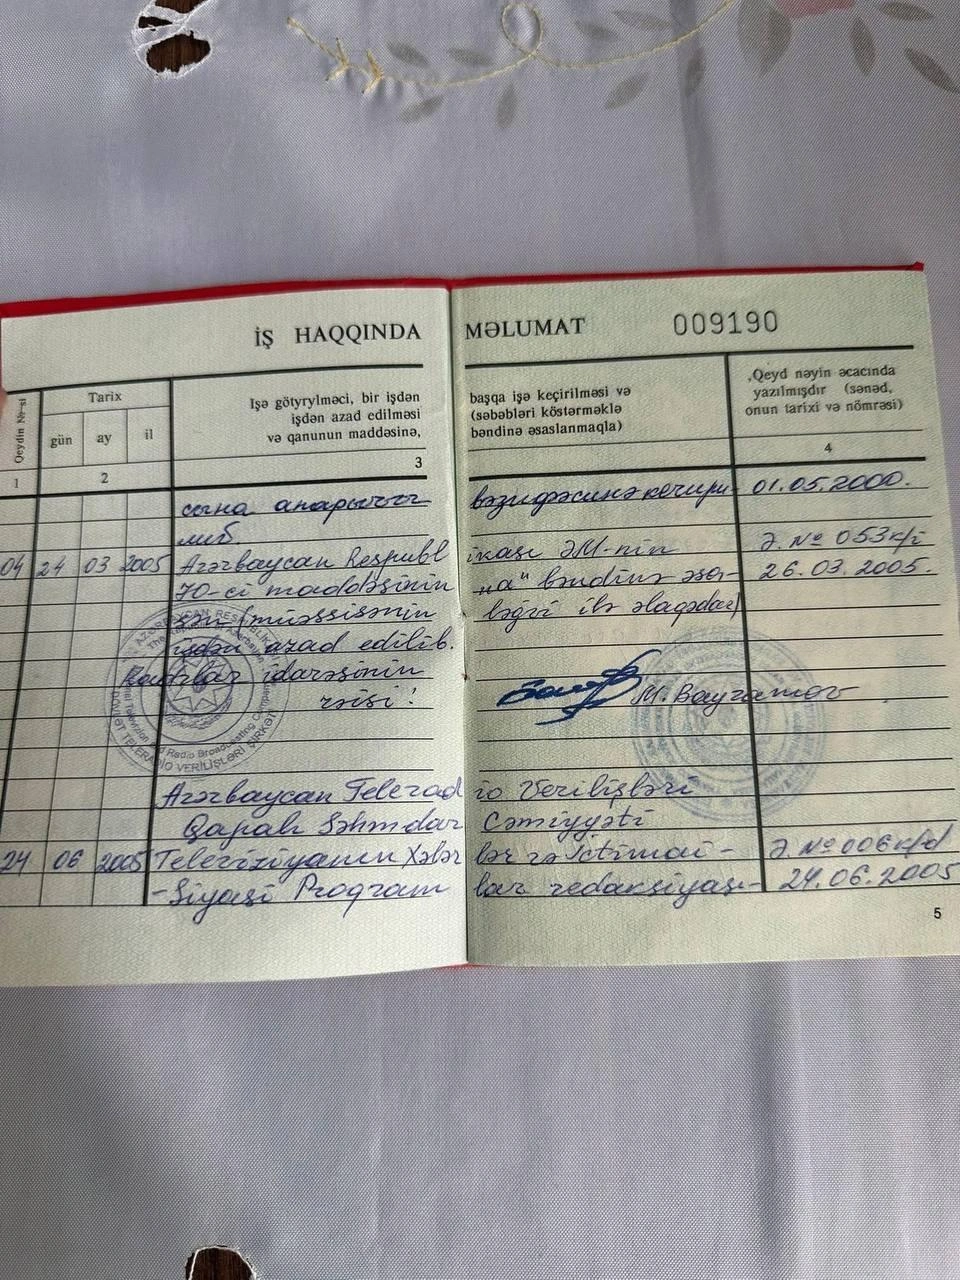 İŞ HAQQINDA MƏLUMAT 009190
Qeydin №-si
Tarix
gün ay il
Işə götyrylməci, bir işdən başqa işə keçirilməsi və
işdən azad edilməsi (səbəbləri köstərməklə
və qanunun maddəsinə, bəndinə əsaslanmaqla)
,Qeyd nəyin əcacında
yazılmışdır (sənəd,
onun tarixi və nömrəsi)
1 2 3 4
сына апарычы вәзифәсинә 01.05.2000.
либ.
04 24 03 2005 Azərbaycan Respublikası ƏM-nin Ə. № 053 k/i
70-ci maddəsinin "a" bəndinə əsa- 26.03.2005.
sən (müəssisənin ləğvi ilə əlaqədar)
işdən azad edilib.
Kadrlar idarəsinin
rəisi: M. Bayramov
AZƏRBAYCAN RESPUBLİKASI
DÖVLƏT TELERADİO VERİLİŞLƏRİ ŞİRKƏTİ
Television and Radio Broadcasting Company
Azərbaycan Teleradio Verilişləri
Qapalı Səhmdar Cəmiyyəti
24 06 2005 Televiziyanın Xəbərlər və İctimai- Ə. № 006 k/d
-Siyasi Proqramlar redaksiyası- 24.06.2005
5